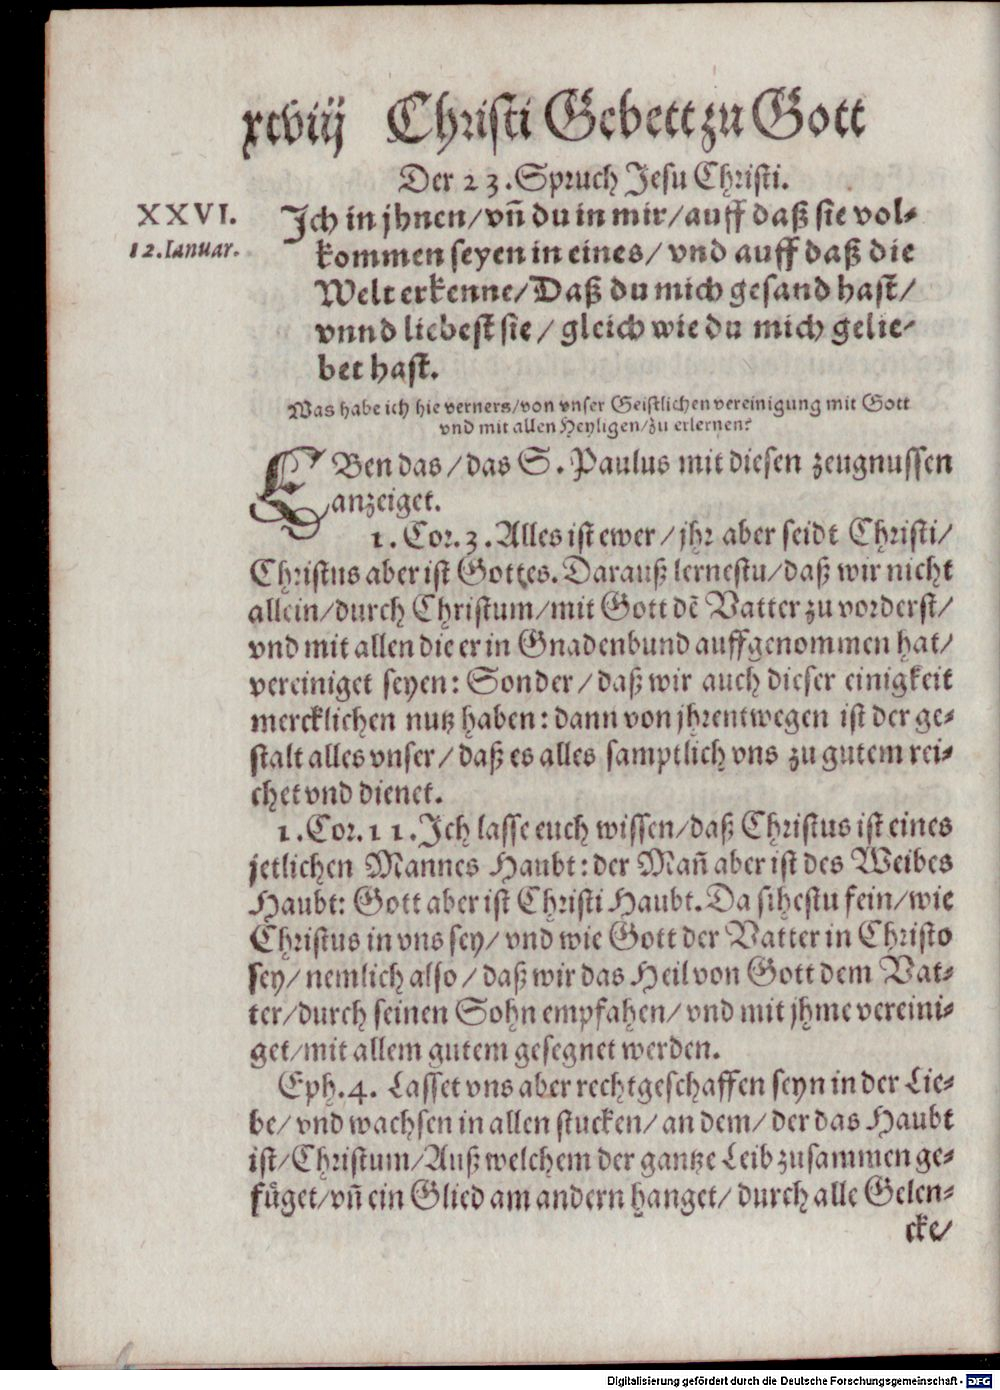 xcviij Christi Gebett zu Gott
Der 23. Spruch Jesu Christi.
XXVI.
12. Ianuar.
Ich in jhnen/ vñ du in mir/ auff daß sie vol-
kommen seyen in eines/ vnd auff daß die
Welt erkenne/ Daß du mich gesand hast/
vnnd liebest sie/ gleich wie du mich gelie-
bet hast.
Was habe ich hie verners/ von vnser Geistlichen vereinigung mit Gott
vnd mit allen Heyligen/ zu erlernen?
EBen das/ das S. Paulus mit diesen zeugnussen
anzeiget.
1. Cor. 3. Alles ist ewer/ jhr aber seidt Christi/
Christus aber ist Gottes. Darauß lernestu/ daß wir nicht
allein/ durch Christum/ mit Gott dẽ Vatter zu vorderst/
vnd mit allen die er in Gnadenbund auffgenommen hat/
vereiniget seyen: Sonder/ daß wir auch dieser einigkeit
mercklichen nutz haben: dann von jhrentwegen ist der ge-
stalt alles vnser/ daß es alles samptlich vns zu gutem rei-
chet vnd dienet.
1. Cor. 11. Ich lasse euch wissen/ daß Christus ist eines
jetlichen Mannes Haubt: der Mañ aber ist des Weibes
Haubt: Gott aber ist Christi Haubt. Da sihestu fein/ wie
Christus in vns sey/ vnd wie Gott der Vatter in Christo
sey/ nemlich also/ daß wir das Heil von Gott dem Vat-
ter/ durch seinen Sohn empfahen/ vnd mit jhme vereini-
get/ mit allem gutem gesegnet werden.
Eph. 4. Lasset vns aber rechtgeschaffen seyn in der Lie-
be/ vnd wachsen in allen stucken/ an dem/ der das Haubt
ist/ Christum/ Auß welchem der gantze Leib zusammen ge-
füget/ vñ ein Glied am andern hanget/ durch alle Gelen-
cke/
Digitalisierung gefördert durch die Deutsche Forschungsgemeinschaft - DFG